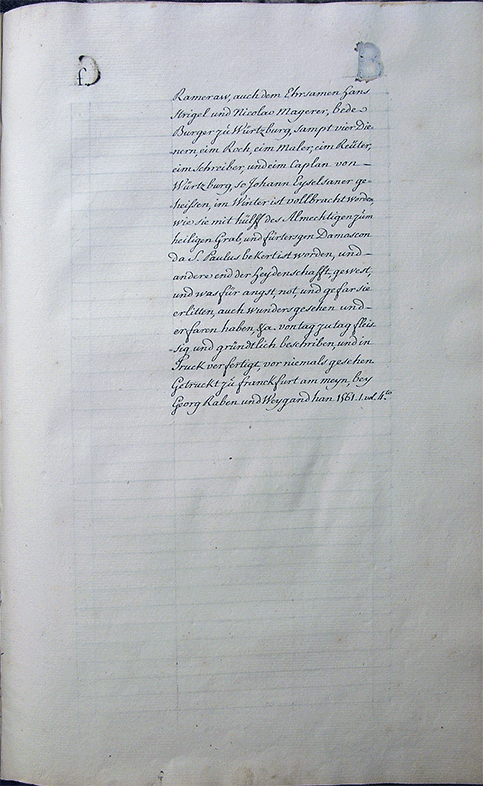 B
Rameraw, auch dem Ehrsamen Hans
Strigel und Nicolao Magerer, bede
Burger zu Würtzburg, sampt vier Die-
nern, eim Koch, eim Maler, eim Reüter,
eim Schreiber, und eim Caplan von
Würtzburg, so Johann Eyselsaner ge-
heissen, im Winter ist vollbracht worden,
wie sie mit hülff des Almechtigen zum
heiligen Grab, und fürter gen Damascon
da S. Paulus bekert ist worden, und
andere end der Heydenschafft, gewest,
und was für angst, not, und gefar sie
erlitten, auch wunders gesehen und
erfaren haben, &a. von tag zu tag fleis-
sig und gründtlich beschriben, und in
Truck verfertigt, vor niemals gesehen
Getruckt zu franckfurt am meyn, bey
Georg Raben und Weygand han 1561. 1. vol. 4.to